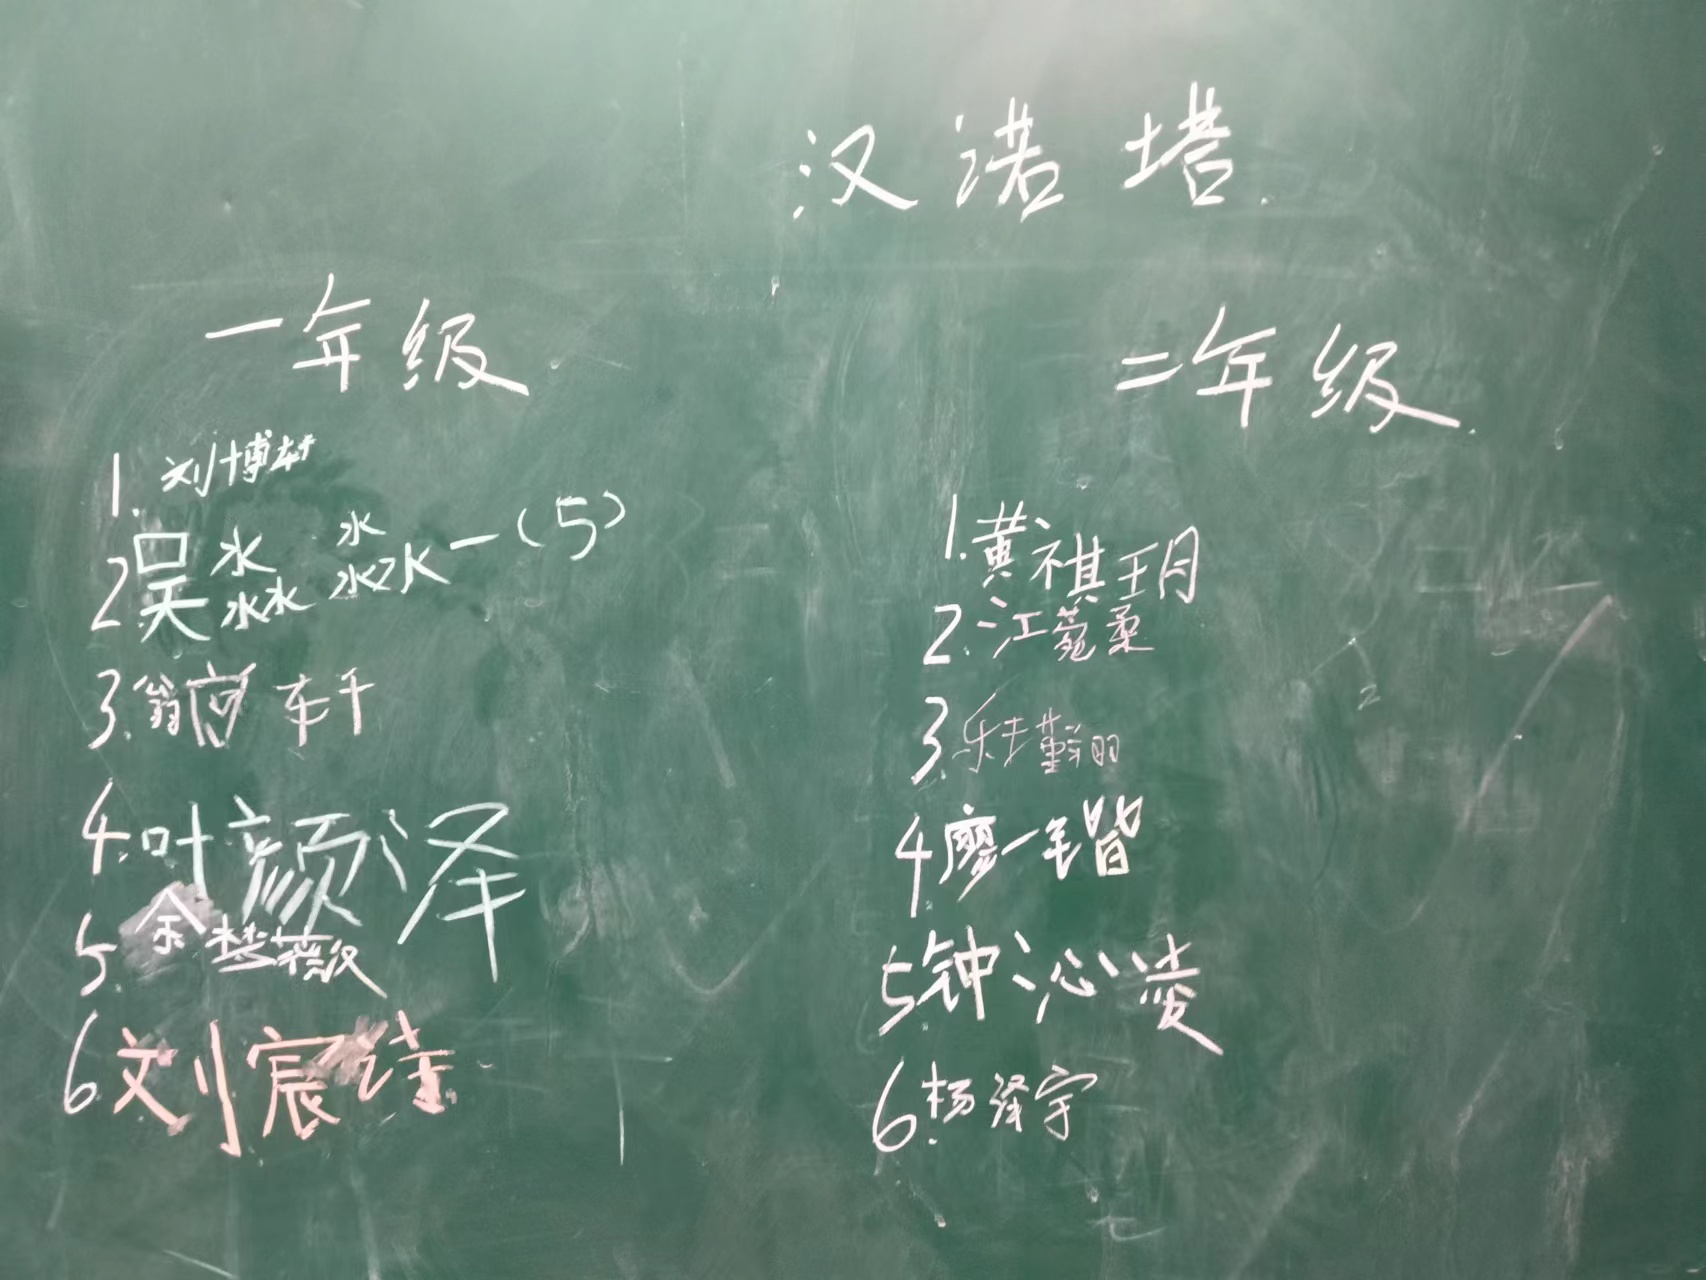 汉诺塔
一年级
1. 刘博轩
2 吴淼淼一(5)
3.翁
4.叶颜泽
5.余梦薇汉
6刘宸诗
二年级
1.黄祺玥
2.江菀柔
3.
4廖一
5钟沁凌
6.杨泽宇